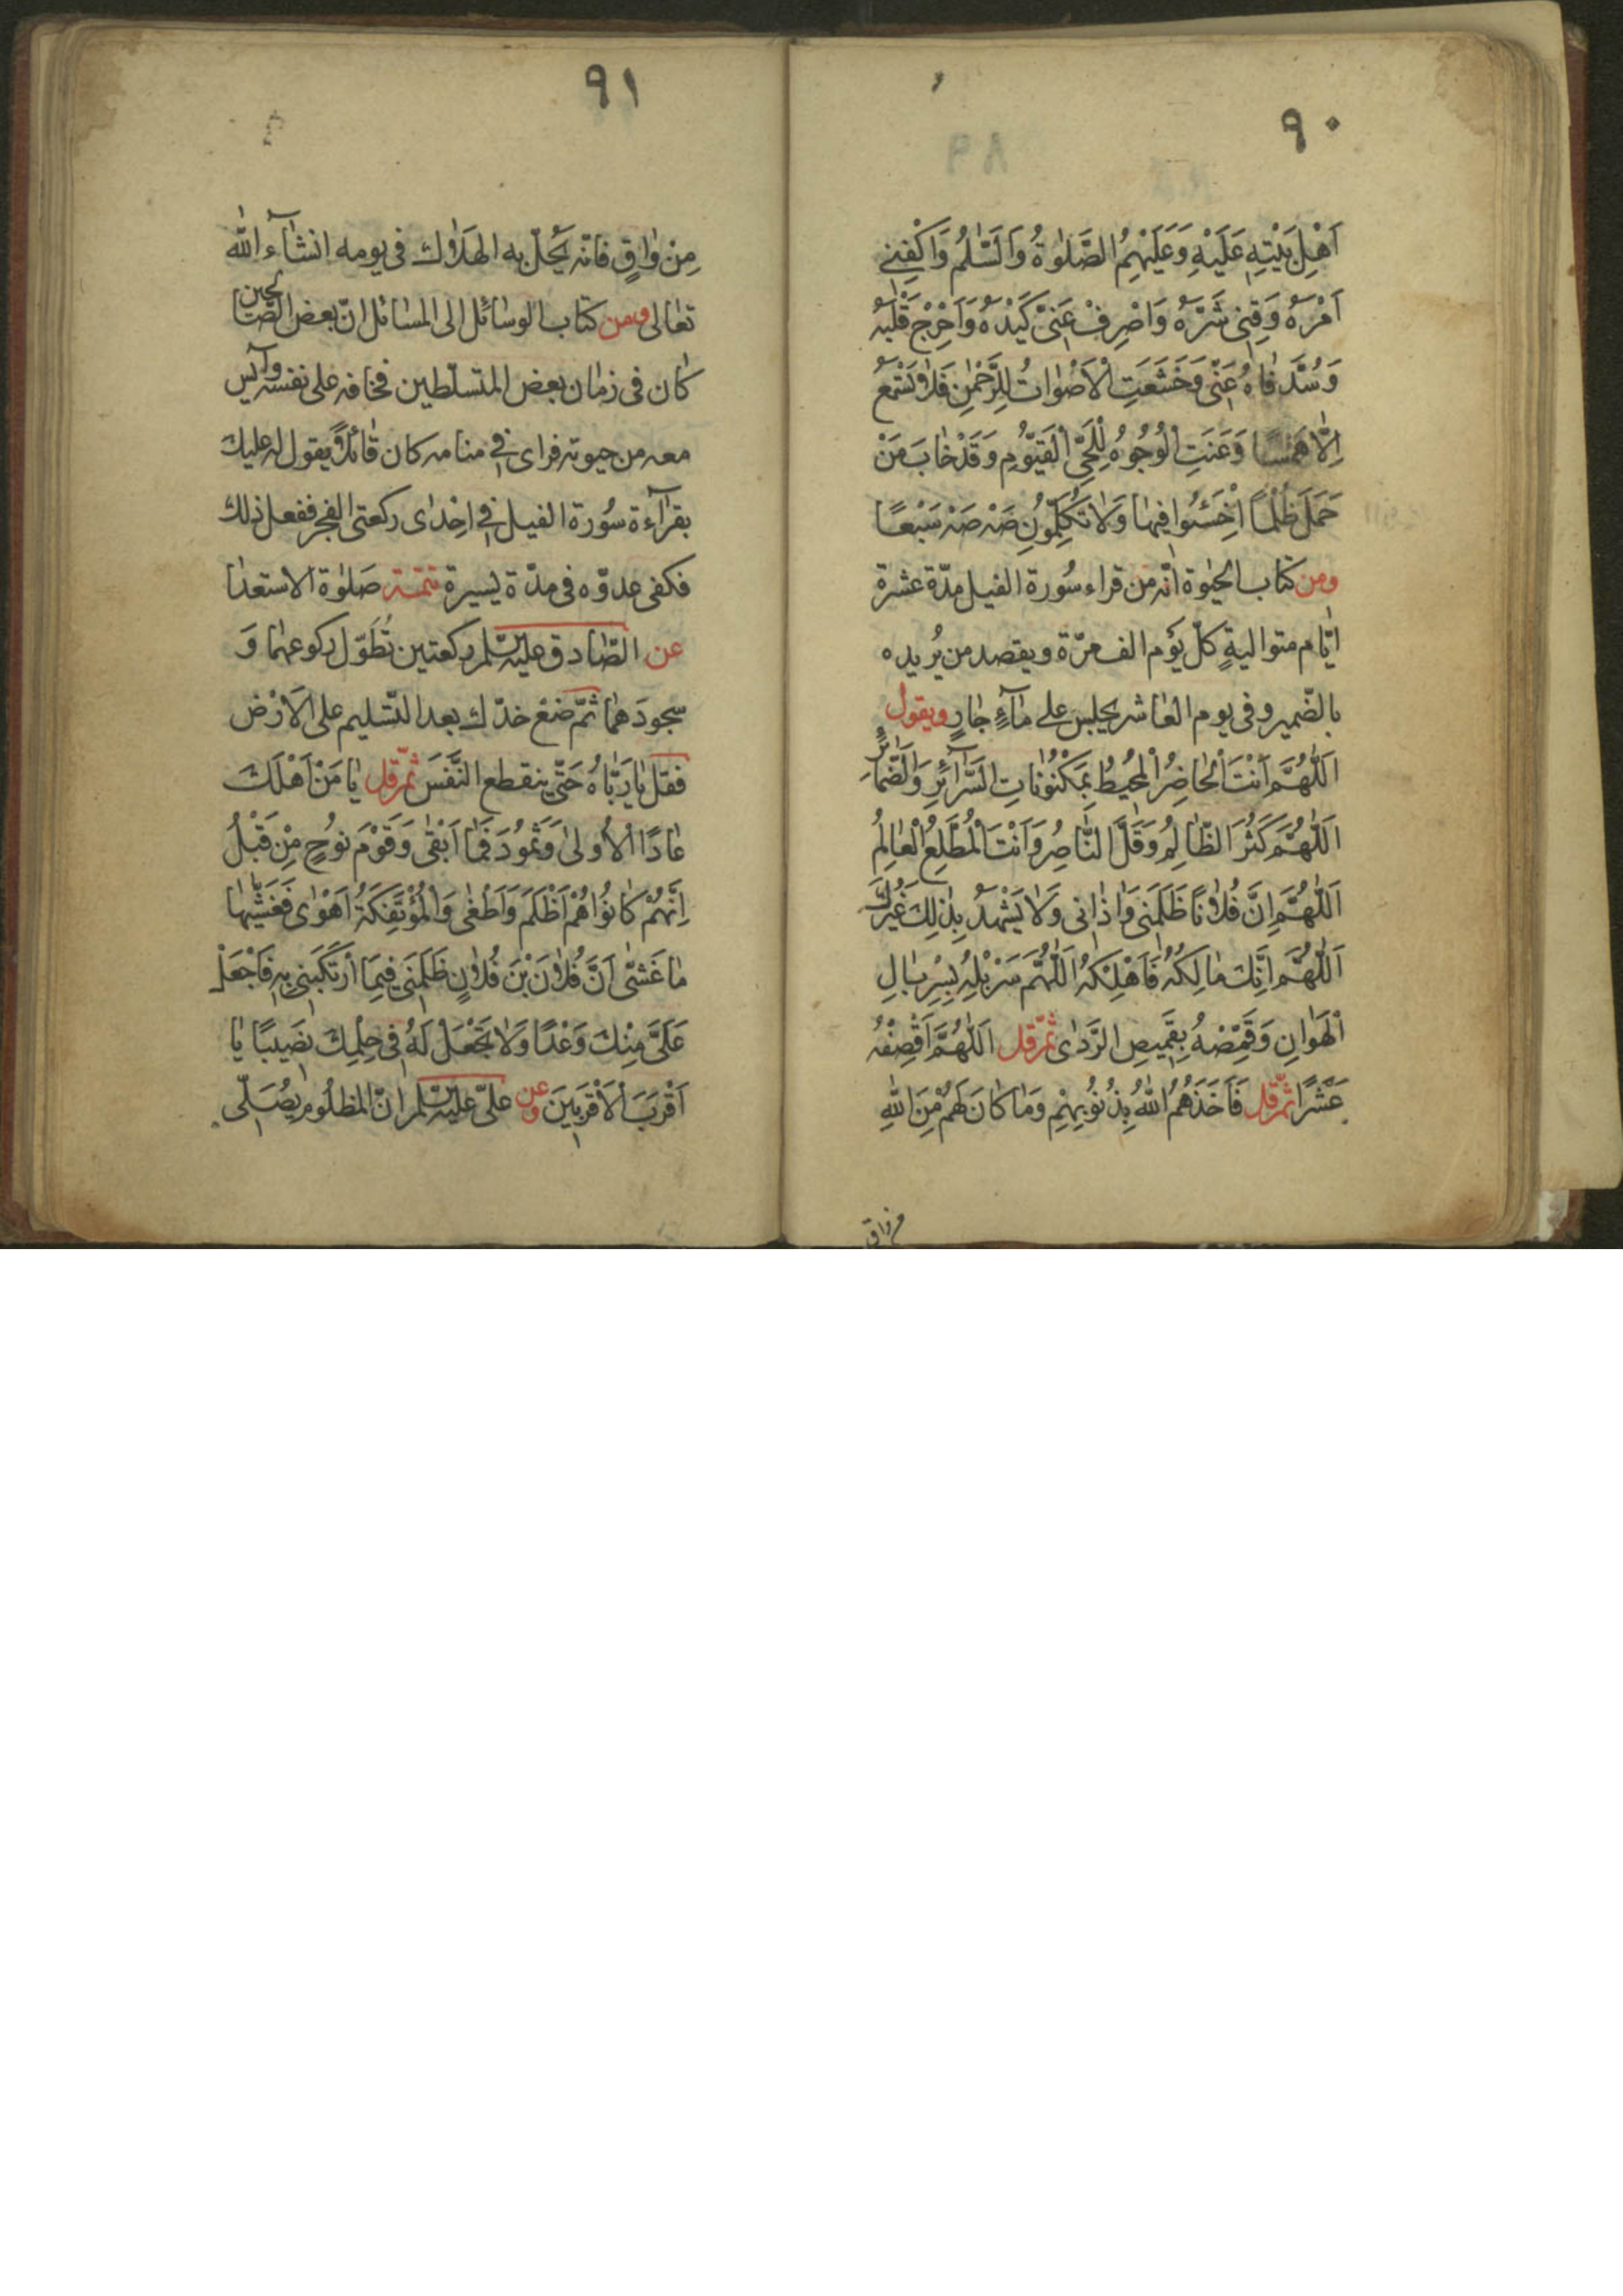 ٩٠
اَهْلِ بَيْتِهِ عَلَيْهِ وَعَلَيْهِمُ الصَّلٰوةُ وَالسَّلٰمُ وَاكْفِنِي
اَمْرَهُ وَقِنِي شَرَّهُ وَاصْرِفْ عَنِّي كَيْدَهُ وَاَحْرِجْ قَلْبَهُ
وَسُدَّ فٰاهُ عَنِّي وَخَشَعَتِ الْاَصْوٰاتُ لِلرَّحْمٰنِ فَلٰا تَسْمَعُ
اِلّٰا هَمْسًا وَعَنَتِ الْوُجُوهُ لِلْحَيِّ الْقَيُّومِ وَقَدْ خٰابَ مَنْ
حَمَلَ ظُلْمًا اخْسَئُوا فِيهٰا وَلٰا تُكَلِّمُونِ صَهْ صَهْ سَبْعًا
ومن كتاب الحيٰوة انّه من قراء سُورة الفيل مدّة عشرة
ايّام متواليةٍ كلّ يَوم الف مرّة ويقصد من يُريده
بالضّمير وفى يوم العٰاشر يجلس على مٰآءٍ جٰارٍ ويقول
اَللّٰهُمَّ اَنْتَ الْحٰاضِرُ الْمُحِيطُ بِمَكْنُونٰاتِ السَّرٰآئِرِ وَالضَّمٰائِرِ
اَللّٰهُمَّ كَثُرَ الظّٰالِمُ وَقَلَّ النّٰاصِرُ وَاَنْتَ الْمُطَّلِعُ الْعٰالِمُ
اَللّٰهُمَّ اِنَّ فُلٰانًا ظَلَمَنِي وَاٰذٰانِي وَلٰا يَشْهَدُ بِذٰلِكَ غَيْرُكَ
اَللّٰهُمَّ اِنَّكَ مٰالِكُهُ فَاَهْلِكْهُ اَللّٰهُمَّ سَرْبِلْهُ بِسِرْبٰالِ
الْهَوٰانِ وَقَمِّصْهُ بِقَمِيصِ الرَّدٰى ثمّ قل اَللّٰهُمَّ اقْصِفْهُ
عَشْرًا ثمّ قل فَاَخَذَهُمُ اللّٰهُ بِذُنُوبِهِمْ وَمٰا كٰانَ لَهُمْ مِنَ اللّٰهِ
من واق
٩١
مِنْ وٰاقٍ فانّه يُحلّ به الهلٰاك فى يومه انشٰآء اللّٰه
تعٰالى ومن كتٰاب الوسٰائل الى المسٰائل انّ بعض الصّٰالحين
كٰان فى زمٰان بعض المتسلّطين فخافه على نفسه وآيس
معه من حيوته فراى فى منامه كان قٰائلًا يقول له عليك
بقرٰآءة سُورة الفيل فى اِحْدٰى ركعتى الفجر ففعل ذلك
فكفى عدوّه فى مدّة يَسيرة تتمّة صَلوٰة الاستعدٰا
عن الصّٰادق عليه السّلم ركعتين تُطَوّل ركوعهمٰا وَ
سجودَهمٰا ثمّ ضَعْ خدّك بعد التّسْليم على الاَرْض
فقل يٰا رَبّٰاهُ حَتّٰى ينقطع النَّفَسَ ثمّ قل يٰا مَنْ اَهْلَكَ
عٰادًا الْاُولىٰ وَثَمُودَ فَمٰا اَبْقٰى وَقَوْمَ نُوحٍ مِنْ قَبْلُ
اِنَّهُمْ كٰانُوا هُمْ اَظْلَمَ وَاَطْغٰى وَالْمُؤْتَفِكَةَ اَهْوٰى فَغَشّٰيهٰا
مٰا غَشّٰى اَنَّ فُلٰانَ بْنَ فُلٰانٍ ظَلَمَنِي فِيمَا ارْتَكَبَنِي بِهِ فَاجْعَلْ
عَلَيَّ مِنْكَ وَعْدًا وَلٰا تَجْعَلْ لَهُ فِي حِلْمِكَ نَصِيبًا يٰا
اَقْرَبَ الْاَقْرَبِينَ وعن علىّ عليه السّلم انّ المظلُوم يصَلّى